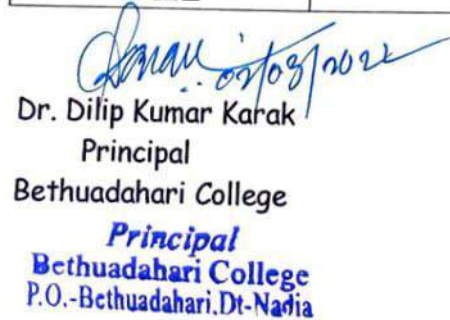 02/03/2022
Dr. Dilip Kumar Karak
Principal
Bethuadahari College
Principal
Bethuadahari College
P.O.-Bethuadahari,Dt-Nadia